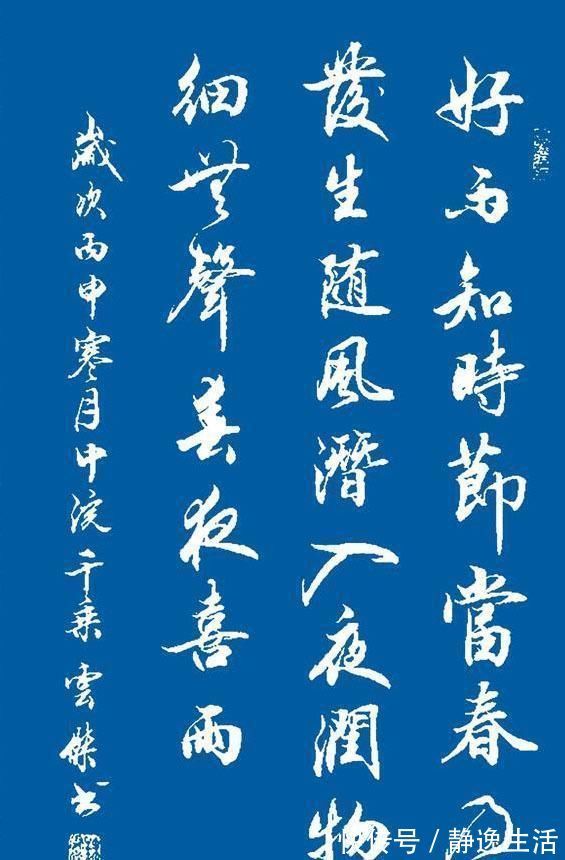 好雨知時節當春乃
發生随風潛入夜潤物
細無聲春夜喜雨
歲次丙申寒月中浣千乘雲傑书
快传号/静逸生活